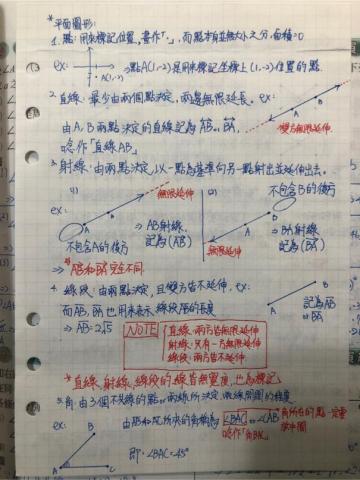 *平面圖形:
1. 點: 用來標記位置, 畫作「·」, 而點本身並無大小之分, 面積=0
ex:
A(1,-2)
⇒ 點A(1,-2)是用來標記坐標上(1,-2)位置的點.
2. 直線: 最少由兩個點決定, 兩邊無限延長. ex:
A
B
雙方無限延伸
由A, B兩點決定的直線記為 AB or BA,
唸作「直線AB」
3. 射線: 由兩點決定, 以一點為基準向另一點射出並延伸出去.
(1)
無限延伸
(2)
不包含B的後方
ex:
A
B
⇒ AB射線,
記為(AB)
⇒ BA射線
記為(BA)
不包含A的後方
無限延伸
⇒ AB和BA完全不同.
4. 線段: 由兩點決定, 且雙方皆不延伸, ex:
A
B
記為AB
or BA
而AB, BA 也用來表示線段AB的長度
⇒ AB=2√5
NOTE
直線: 兩方皆無限延伸
射線: 只有一方無限延伸
線段: 兩方皆不延伸
*直線、射線、線段的線皆無寬度, 也為標記.
5. 角: 由3個不共線的點or兩線所決定,
ex:
B
A
C
由AB和AC所決的角稱為 ∠BAC or ∠CAB
唸作「角BAC」
角所在的點一定要
即: ∠BAC=45°